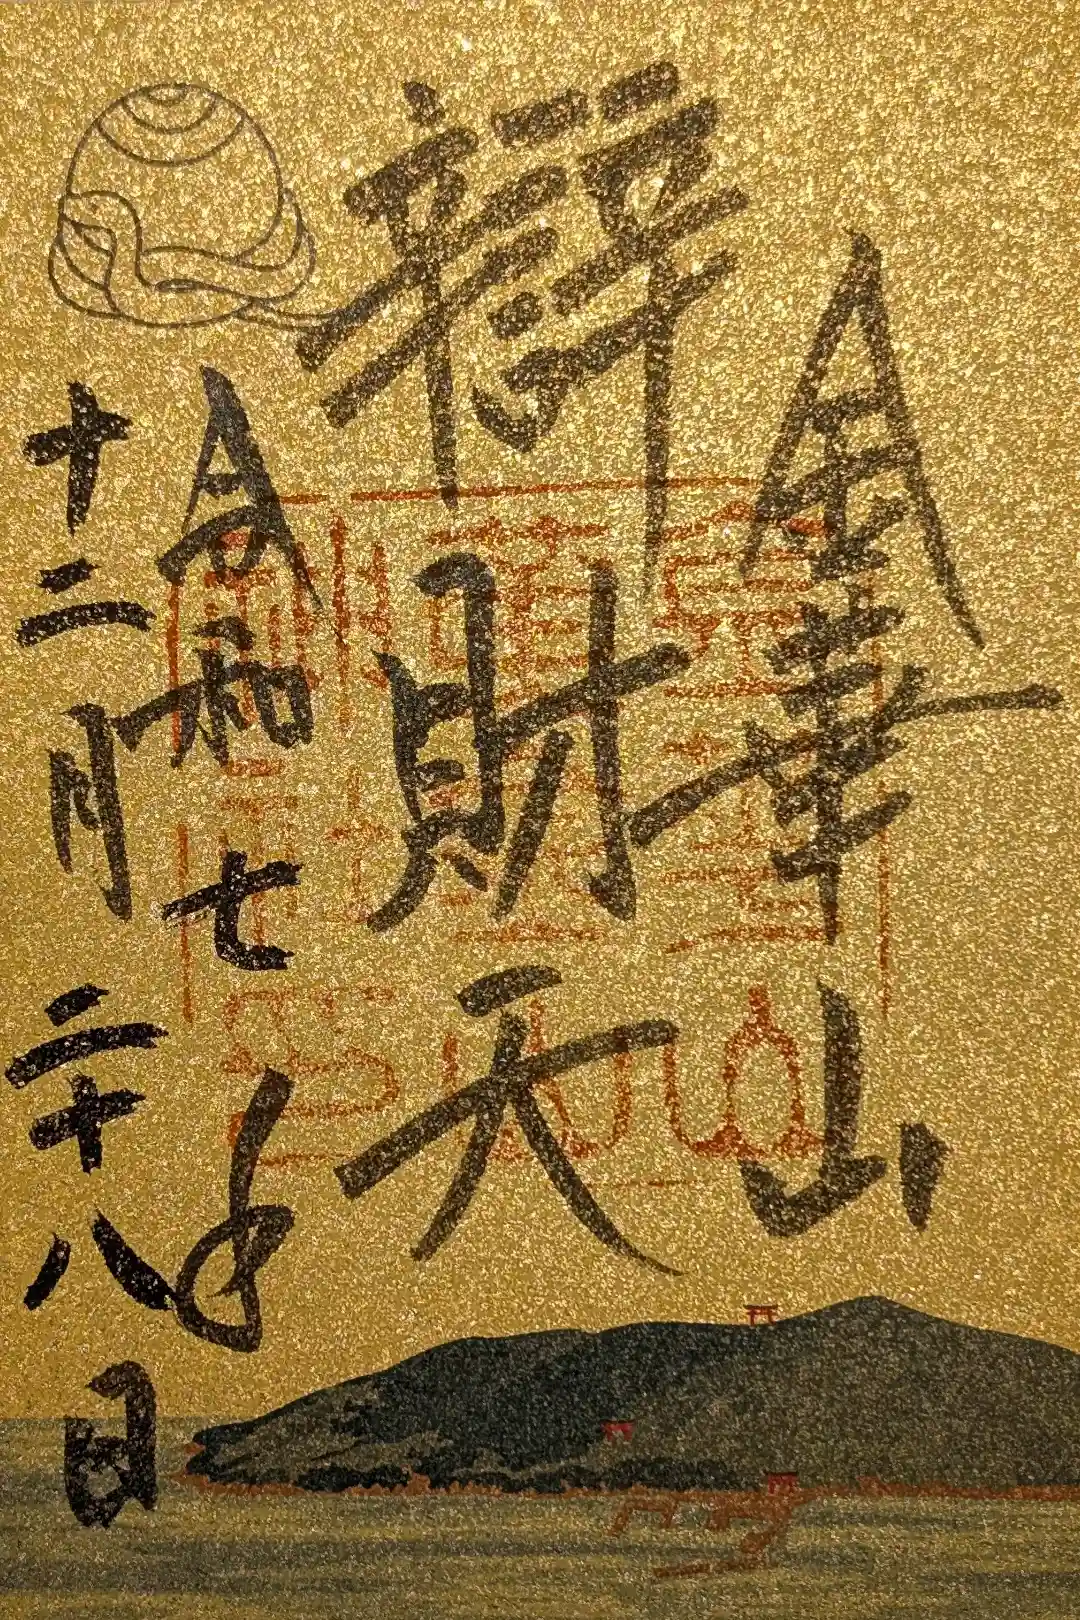 金華山
辨財天
令和七年
十二月二十八日